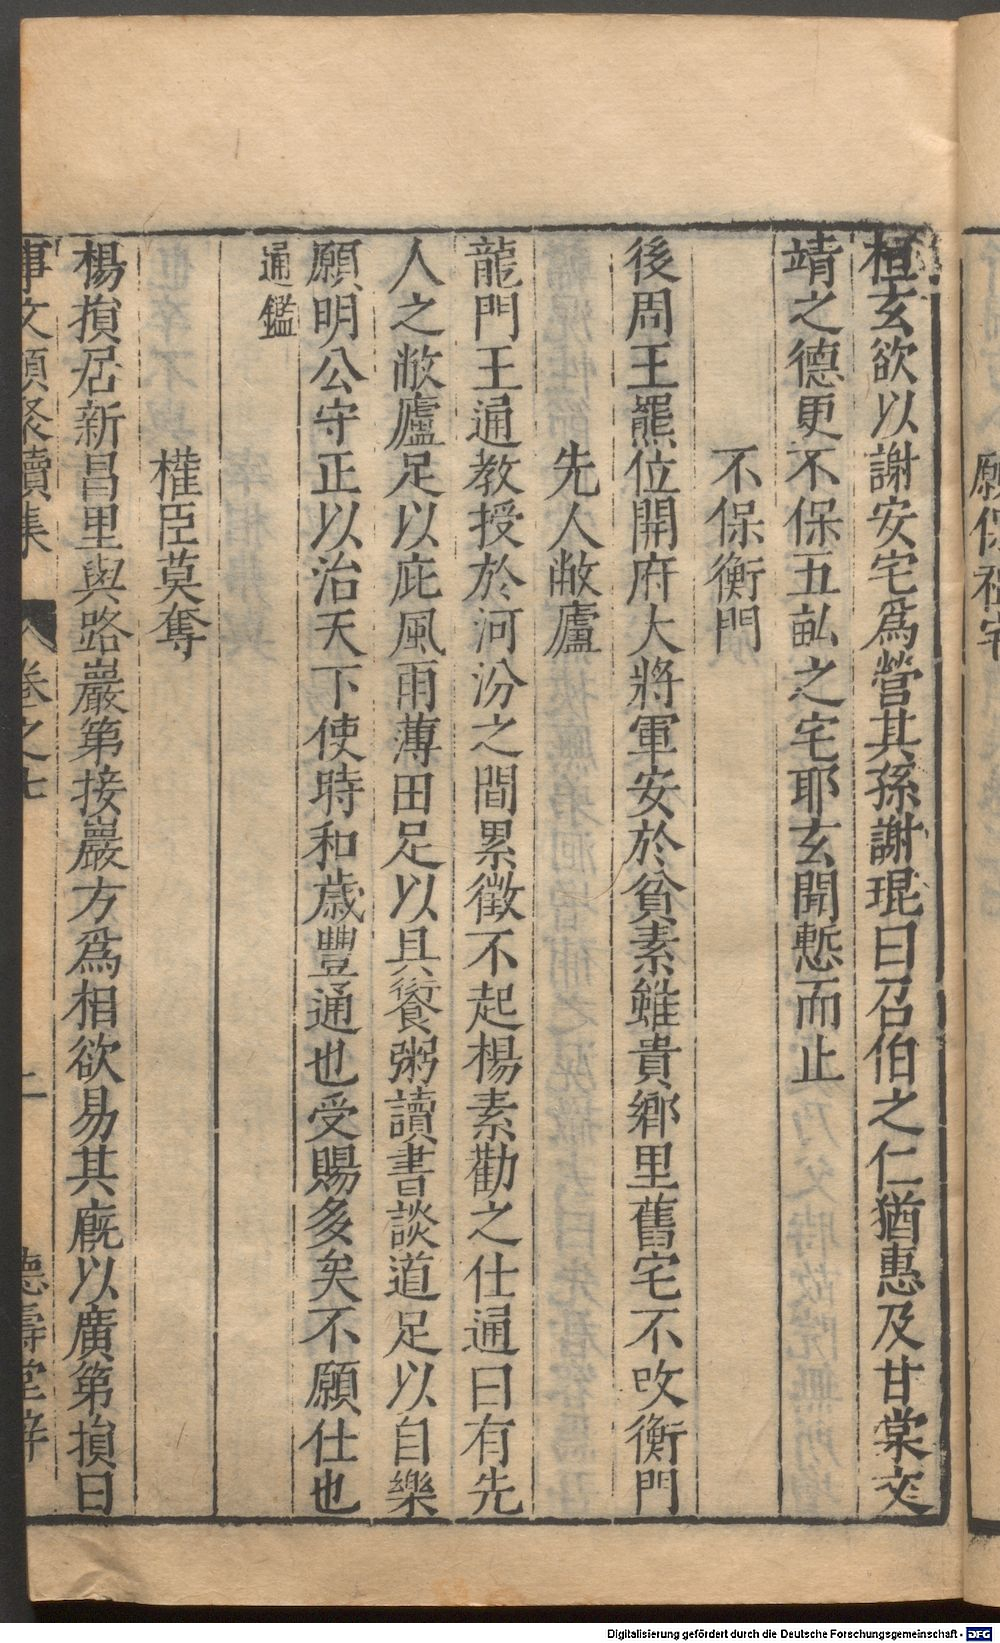 願保祖宅
桓玄欲以謝安宅爲營其孫謝琨曰召伯之仁猶惠及甘棠文
靖之德更不保五畝之宅耶玄聞慙而止
不保衡門
後周王羆位開府大將軍安於貧素雖貴鄉里舊宅不改衡門
先人敝廬
龍門王通教授於河汾之間累徵不起楊素勸之仕通曰有先
人之敝廬足以庇風雨薄田足以具餐粥讀書談道足以自樂
願明公守正以治天下使時和歲豐通也受賜多矣不願仕也
通鑑
權臣莫奪
楊損居新昌里與路巖第接巖方爲相欲易其廐以廣第損曰
事文類聚續集 卷之七 二 德壽堂梓
Digitalisierung gefördert durch die Deutsche Forschungsgemeinschaft - DFG